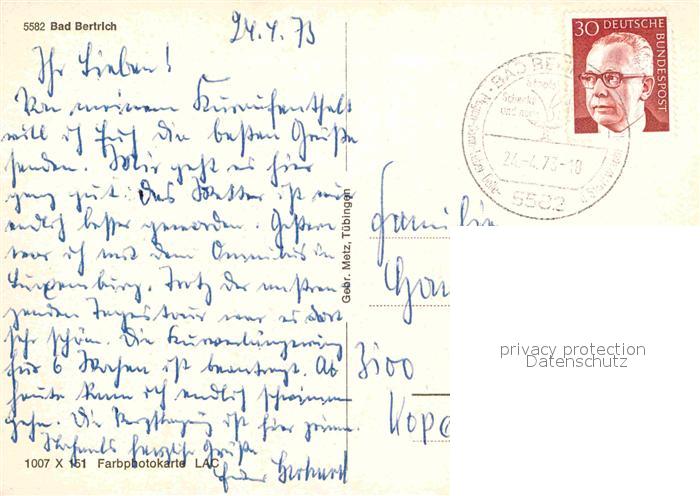 5582 Bad Bertrich
24.4.73
Ihr Lieben!
Von meinem Kuraufenthalt
will ich Euch die besten Grüße
senden. Mir geht es hier
ganz gut. Das Wetter ist nun
endlich besser geworden. Gestern
war ich mit dem Omnibus in
Luxemburg. Trotz der anstren-
genden Tagestour war es dort
sehr schön. Die Kurverlängerung
für 6 Wochen ist beantragt. Ab
heute kann ich endlich schwimmen
gehn. Die Verpflegung ist hier prima.
Nochmals herzliche Grüße
1007 X 151 Farbphotokarte LAC
Gebr. Metz, Tübingen
30 DEUTSCHE
BUNDESPOST
BAD BE
24.-4.73-10
5582
Familie
3100
privacy protection
Datenschutz